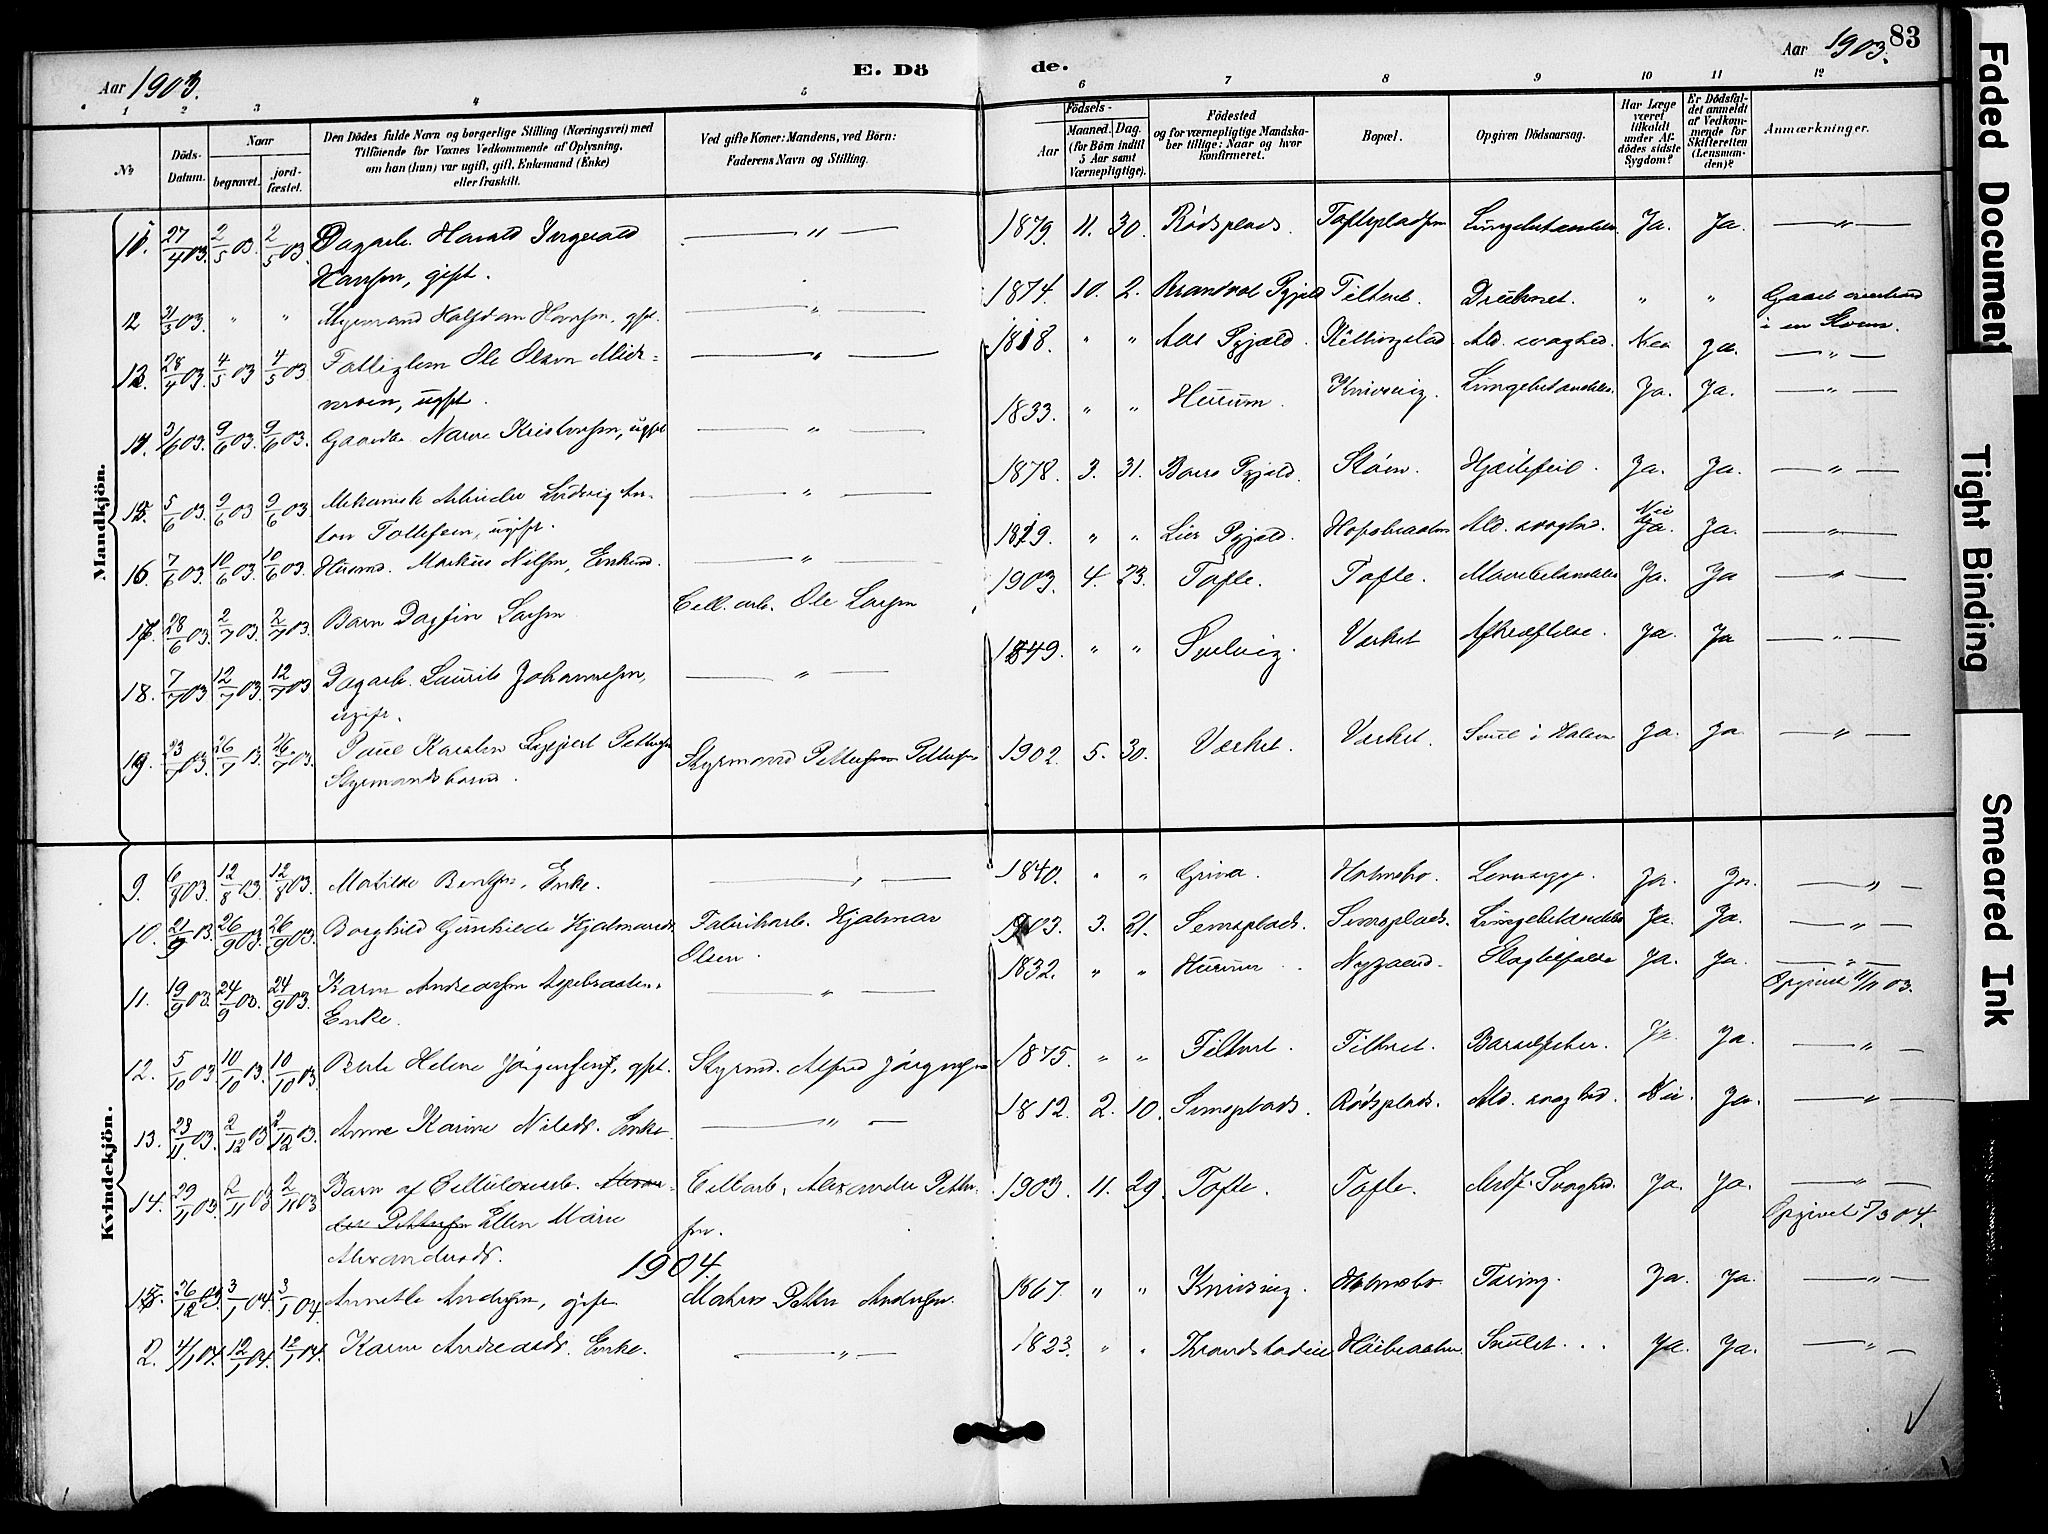 Aar 1903.
E. Dö de.
Aar 1903.
83
1 2 3 4 5 6 7 8 9 10 11 12
No
Döds-Datum.
Naar
begravet. jord-fæstet.
Den Dödes fulde Navn og borgerlige Stilling (Næringsvei) med
Tilföiende for Voxnes Vedkommende af Oplysning,
om han (hun) var ugift, gift, Enkemand (Enke)
eller fraskilt.
Ved gifte Koner: Mandens, ved Börn:
Faderens Navn og Stilling.
Födsels-
Aar
Maaned. Dag.
(for Börn indtil
5 Aar samt
Værnepligtige).
Födested
og for værnepligtige Mandska-
ber tillige: Naar og hvor
konfirmeret.
Bopæl.
Opgiven Dödsaarsag.
Har Læge
været
tilkaldt
under Af-
dödes sidste
Sygdom?
Er Dödsfal-
det anmeldt
af Vedkom-
mende for
Skifteretten
(Lensman-
den)?
Anmærkninger.
Mandkjön.
11. 27/4 03. 2/5 03. 2/5 03. Dagarb. Harald Ingvald — " — 1879. 11. 30. Rödsplads. Toftepladsen Lungebetændelse. Ja. Ja. — " —
Hansen, gift.
12 03. " " Styrmand Halfdan Hansen, gift. — " — 1874. 10. 2. Brandval Pgjeld Filtvet. Druknet. " " Gaaet overbord
i en Storm.
13. 28/4 03. 4/5 03 4/5 03. Fattiglem Ole Olsen — " — 1818. " " Aal Pgjæld. Ald. svaghed. Nei Ja. — " —
ugift.
14. 3/6 03. 9/6 03. 9/6 03. Gaardbr. Narve Kristensen, ugift — " — 1833. " " Hurum. Knivsvig. Lungebetændelse. Ja. Ja. — " —
15. 5/6 03. 9/6 03 9/6 03 Mekanisk Arbeider Ludvig An- — " — 1878. 3. 31. Borre Pgjeld. Stöen. Hjertefeil. Ja. Ja. — " —
ton Tollefsen, ugift.
16. 7/6 03. 10/6 03. 10/6 03. Husmd. Markus Nilsen, Enkemd. — " — 1819. " " Lier Pgjeld. Ald. svaghed. Nei Ja. Ja. — " —
17. 28/6 03. 2/7 03. 2/7 03. Barn Dagfin Larsen Cell. arb. Ole Larsen 1903. 4. 23. Tofte. Tofte. Mavebetændelse Ja. Ja — " —
18. 7/7 03 12/7 03. 12/7 03 Dagarb. Laurits Johannesen, — " — 1849. " " Værket Afkræftelse. Ja. Ja — " —
ugift.
19. 23/7 03. 26/7 13. 26/7 03. Paul Karsten Pettersen Styrmand Pettersen 1902. 5. 30. Værket. Værket. i Halsen Ja. Ja. — " —
Styrmandsbarn.
Kvindekjön.
9. 6/8 03. 12/8 03. 12/8 03. Mathilde Bentsen, Enke. — " — 1840. " " Grina Holmsbo. Ja. Ja. — " —
10. 21/9 13. 26/9 03. 26/9 03. Borghild Gunhilde Hjalmarsd. Fabrikarb. Hjalmar 1903. 3. 21. Semsplads. Semsplads. Lungebetændelse Ja. Ja. — " —
Olsen.
11. 19/9 03. 24/9 03. 24/9 03. Karen Andreassen Aspebraaten. — " — 1832. " " Hurum. Nygaard. Slagtilfælde Ja. Ja. — " —
Enke. Opgivet 11/11 03.
12. 5/10 03. 10/10 13. 10/10 03. Helene Jörgensen, gift. Styrmd. Alfred Jörgensen 1875. " " Filtvet. Filtvet. Barselfeber. Ja Ja. — " —
13. 23/11 03. 2/12 03 2/12 03. Anne Karine Nilsdr. Enke. — " — 1812. 2. 10. Semsplads. Rödsplads. Ald. svaghed. Nei Ja. — " —
14. 29/11 03. 2/11 03 2/11 03 Barn af Cellulosearb. Alexan- Cellarb. Alexander Petter- 1903. 11. 29. Tofte. Tofte. Medf. Svaghed. Ja. Ja. — " —
der Pettersen Ellen Marie sen. Opgivet 5/3 04.
Alexandersdr.
1904.
15. 26/12 03. 3/1 04. 3/1 04. Annette Andersen, gift Matros Petter Andersen. 1867. " " Knivsvig. Holmsbo. Tæring. Ja. Ja. — " —
2. 4/1 04. 12/1 04. 12/1 04. Karen Andreasdr. Enke. — " — 1823. " " Höibraaten. Ja. Ja. — " —
Faded Document
Tight Binding
Smeared Ink